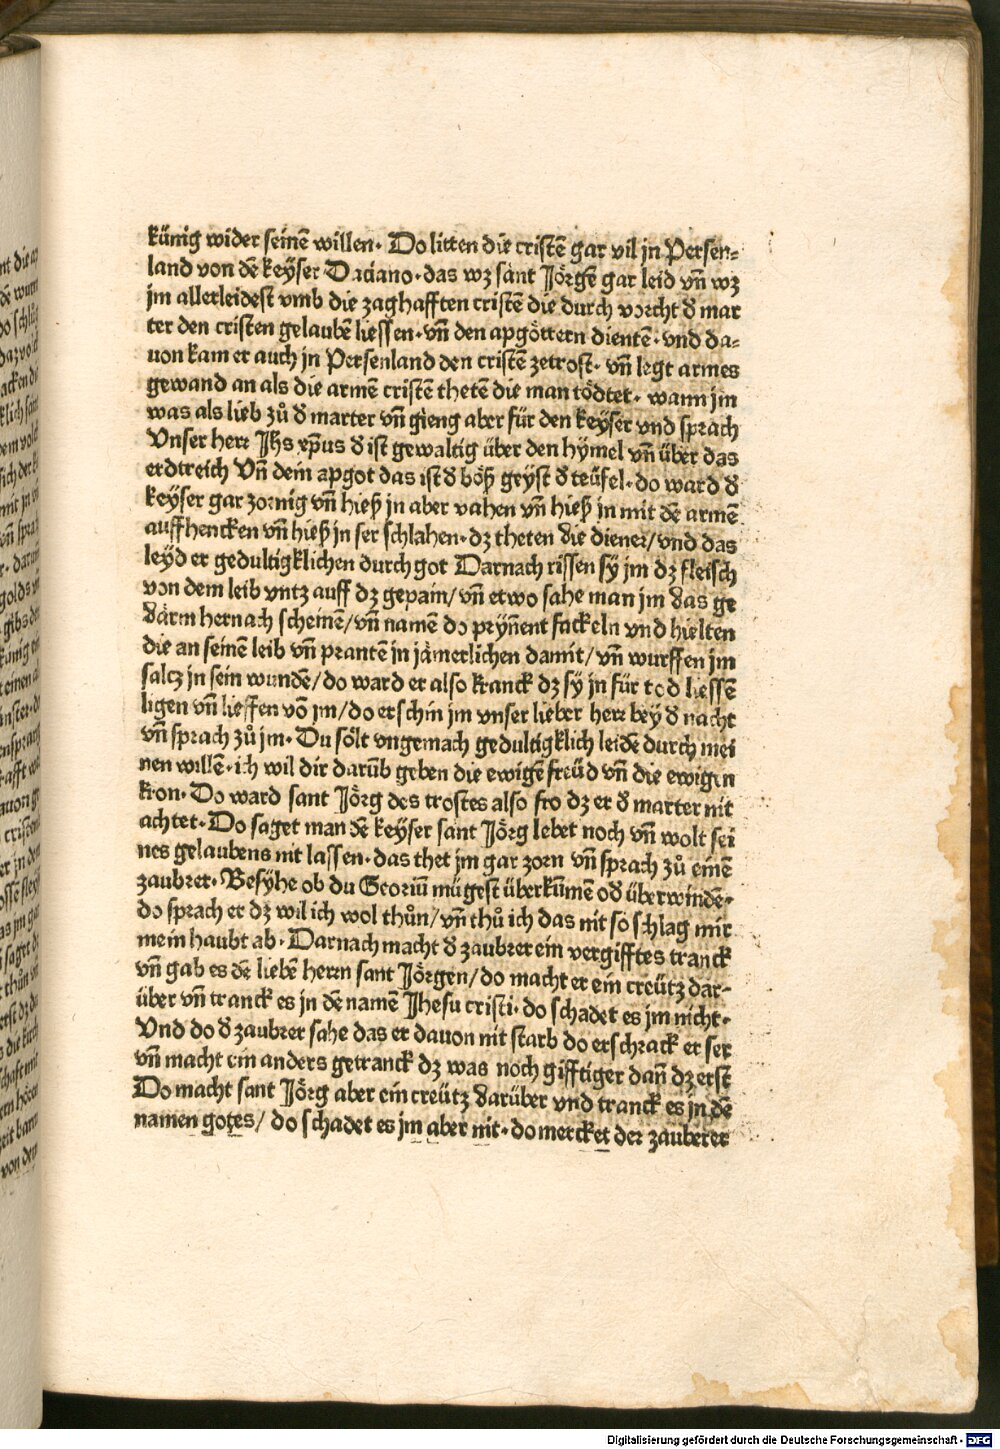 künig wider seinē willen. Do litten die cristē gar vil jn Persen-
land von dē keÿser Daciano. das wz sant Jörgē gar leid vn̄ wz
jm allerleidest vmb die zaghafften cristē die durch vorcht d mar
ter den cristen gelaubē liessen. vn̄ den apgöttern dientē. vnd da-
uon kam er auch jn Persenland den cristē zetrost. vn̄ legt armes
gewand an als die armē cristē thetē die man tödtet. wann jm
was als lieb zů d marter vn̄ gieng aber für den keÿser vnd sprach
Vnser herr Jhs xp̄us d ist gewaltig über den hÿmel vn̄ über das
erdtreich Vn̄ dein apgot das ist d böß geÿst d teüfel. do ward d
keÿser gar zornig vn̄ hieß jn aber vahen vn̄ hieß in mit dē armē
auffhencken vn̄ hieß jn ser schlahen. dz theten die diener/ vnd das
leÿd er gedultigklichen durch got Darnach rissen sÿ jm dz fleisch
von dem leib vntz auff dz gepain/ vn̄ etwo sahe man jm das ge
därm hernach scheinen/ vn̄ namē do prÿn̄ent fackeln vnd hielten
die an seinē leib vn̄ prantē in jämerlichen damit/ vn̄ wurffen jm
saltz jn sein wundē/ do ward er also kranck dz sÿ jn für tod liessē
ligen vn̄ lieffen vō jm/ do erschin jm vnser lieber herr beÿ d nacht
vn̄ sprach zů jm. Du sölt vngemach gedultigklich leidē durch mei
nen willē. ich wil dir darūb geben die ewigē freüd vn̄ die ewigen
kron. Do ward sant Jörg des trostes also fro dz er d marter nit
achtet. Do saget man dē keÿser sant Jörg lebet noch vn̄ wolt sei
nes gelaubens nit lassen. das thet jm gar zorn vn̄ sprach zů einē
zaubrer. Besÿhe ob du Georiū mügest überkūmē od überwindē.
do sprach er dz wil ich wol thůn/ vn̄ thů ich das nit so schlag mir
mein haubt ab. Darnach macht d zaubrer ein vergifftes tranck
vn̄ gab es dē liebē herrn sant Jörgen/ do macht er ein creütz dar-
über vn̄ tranck es jn dē namen Jhesu cristi. do schadet es jm nicht.
Vnd do d zaubrer sahe das er dauon nit starb do erschrack er ser
vn̄ macht ein anders getranck dz was noch gifftiger dan̄ dz erst
Do macht sant Jörg aber ein creütz darüber vnd tranck es jn dē
namen gotes/ do schadet es jm aber nit. do mercket der zauberer
Digitalisierung gefördert durch die Deutsche Forschungsgemeinschaft - DFG